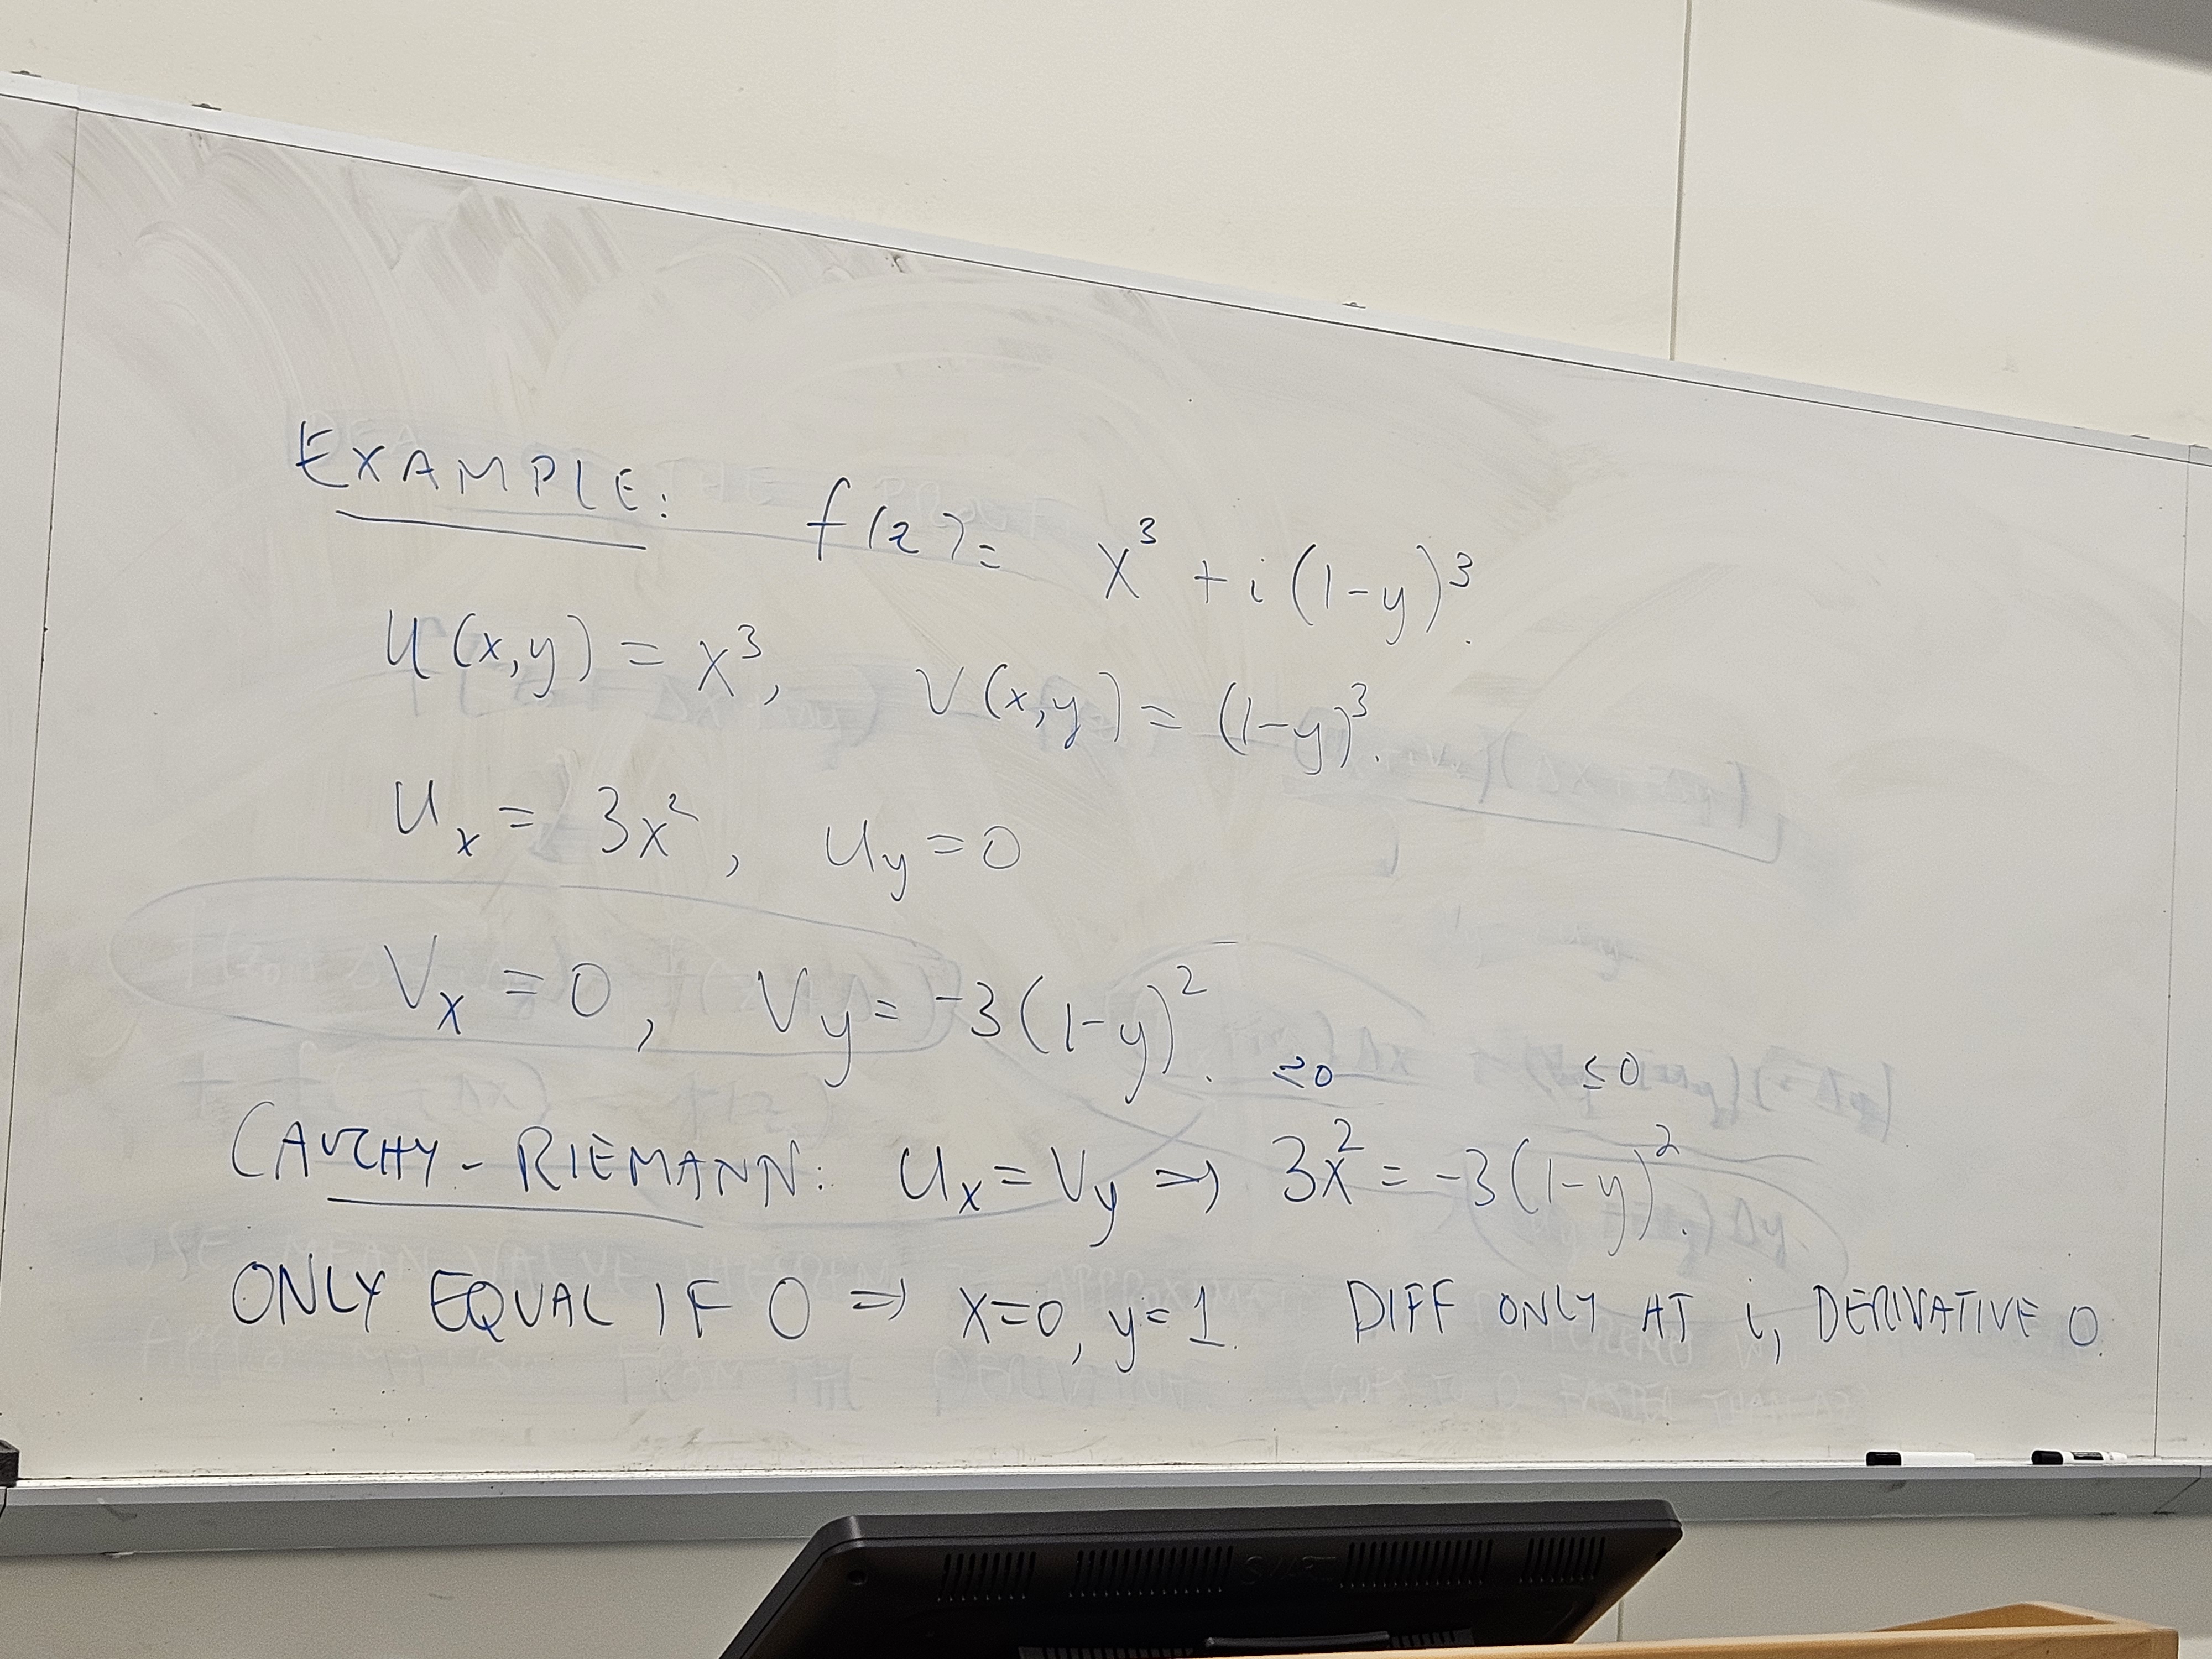 EXAMPLE: f(z) = x³ + i(1-y)³.
u(x,y) = x³, v(x,y) = (1-y)³.
uₓ = 3x², u_y = 0
vₓ = 0, v_y = -3(1-y)².
≥0 ≤0
CAUCHY-RIEMANN: uₓ = v_y ⇒ 3x² = -3(1-y)².
ONLY EQUAL IF 0 ⇒ x=0, y=1. DIFF ONLY AT i, DERIVATIVE 0.